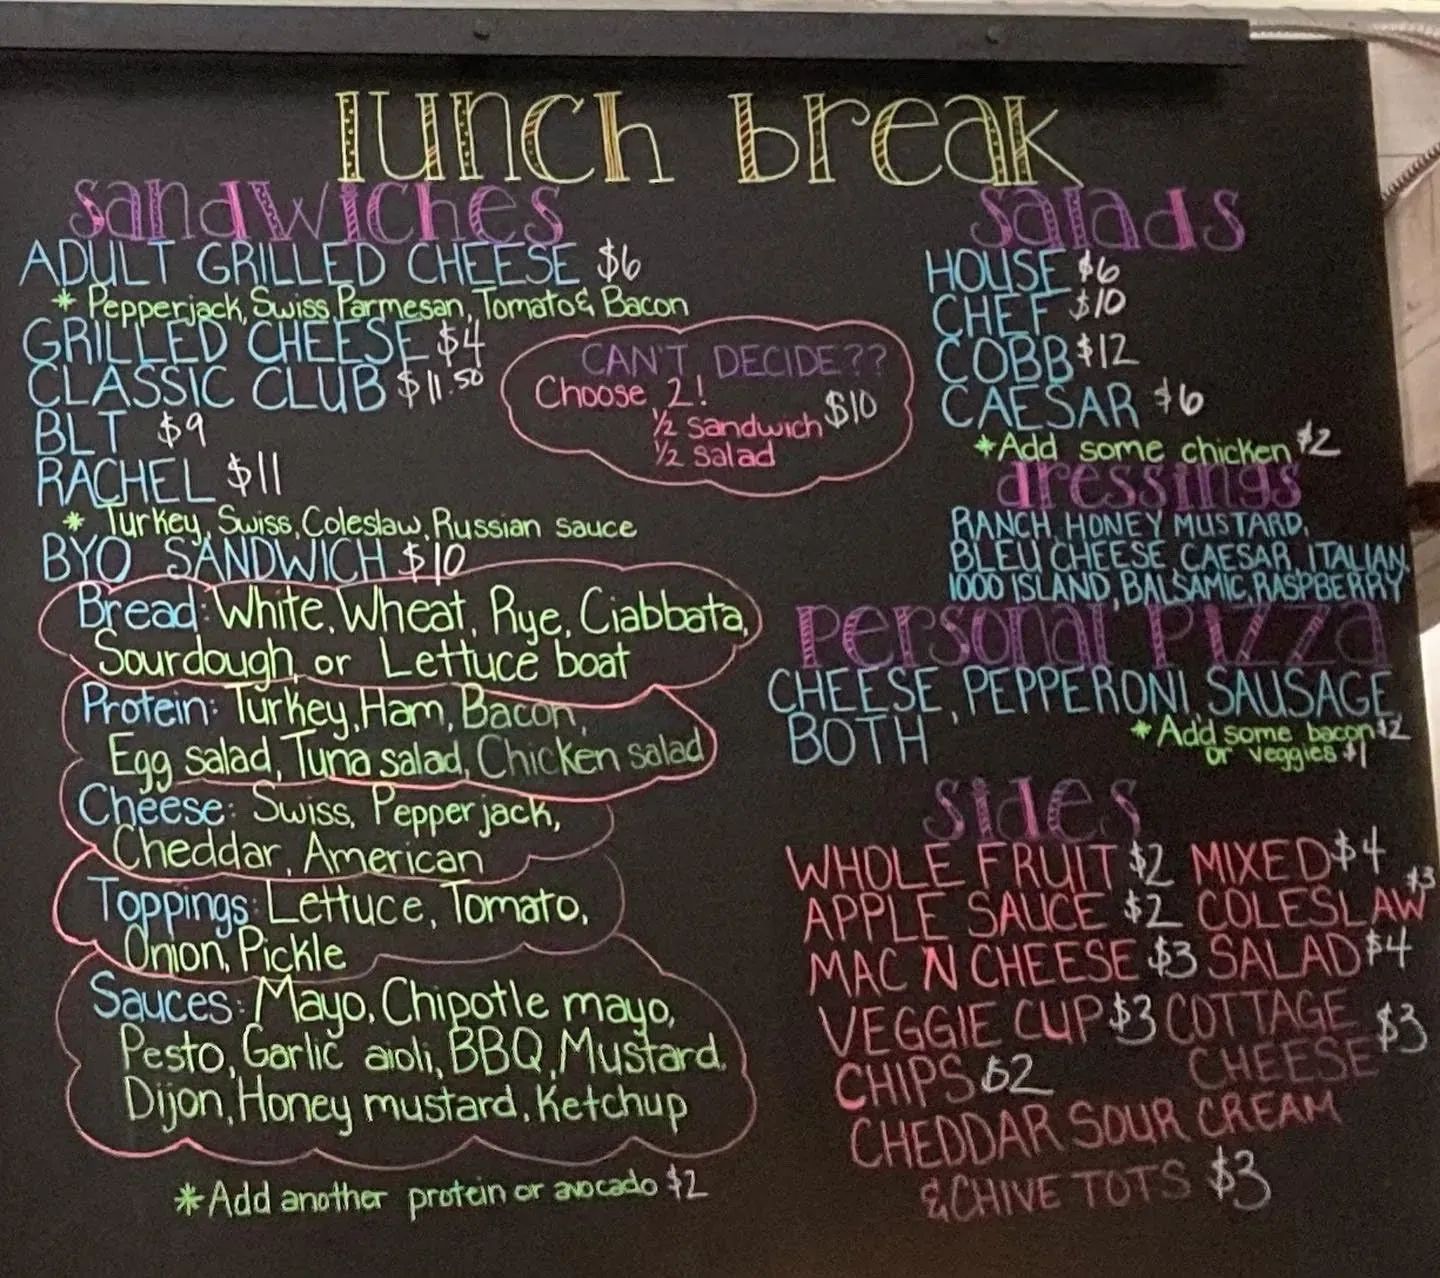 lunch break
sandwiches
ADULT GRILLED CHEESE $6
* Pepperjack, Swiss, Parmesan, Tomato & Bacon
GRILLED CHEESE $4
CLASSIC CLUB $11.50
BLT $9
RACHEL $11
* Turkey, Swiss, Coleslaw, Russian sauce
BYO SANDWICH $10
Bread: White, Wheat, Rye, Ciabbata,
Sourdough, or Lettuce boat
Protein: Turkey, Ham, Bacon,
Egg salad, Tuna salad, Chicken salad
Cheese: Swiss, Pepper jack,
Cheddar, American
Toppings: Lettuce, Tomato,
Onion, Pickle
Sauces: Mayo, Chipotle mayo,
Pesto, Garlic aioli, BBQ, Mustard,
Dijon, Honey mustard, Ketchup
* Add another protein or avocado $2
CAN'T DECIDE??
Choose 2!
1/2 sandwich $10
1/2 salad
salads
HOUSE $6
CHEF $10
COBB $12
CAESAR $6
* Add some chicken $2
dressings
RANCH, HONEY MUSTARD,
BLEU CHEESE, CAESAR, ITALIAN,
1000 ISLAND, BALSAMIC, RASPBERRY
personal pizza
CHEESE, PEPPERONI, SAUSAGE,
BOTH
* Add some bacon $2
or veggies $1
sides
WHOLE FRUIT $2 MIXED $4
APPLE SAUCE $2 COLESLAW $3
MAC N CHEESE $3 SALAD $4
VEGGIE CUP $3 COTTAGE
CHIPS $2 CHEESE $3
CHEDDAR SOUR CREAM
& CHIVE TOTS $3